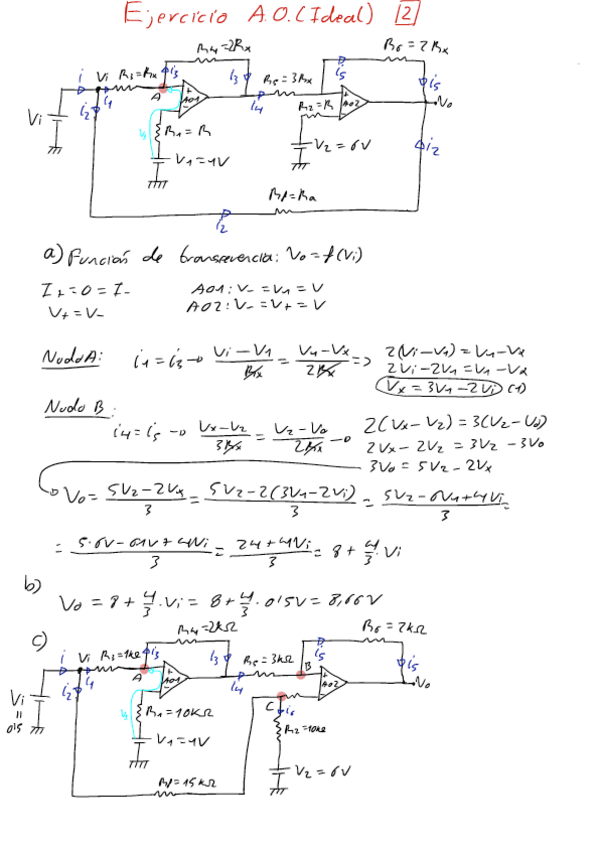 Ejercicio A.O. (Ideal) 2
R4=2Rx
R6=2Rx
i Vi R3=Rx i3
i3 R5=3Rx
i5
i5
A
i1
AO1
i4
R2=R
AO2
Vo
Vi
i2
R1=R
V1=1V
V2=6V
i2
Rf=Ra
i2
a) Función de transferencia: Vo=f(Vi)
I+=0=I-
AO1: V-=V1=V
V+=V-
AO2: V-=V+=V
Nodo A: i1=i3 → Vi-V1/Rx = V1-Vx/2Rx => 2(Vi-V1)=V1-Vx
2Vi-2V1=V1-Vx
Vx=3V1-2Vi (1)
Nodo B:
i4=i5 → Vx-V2/3Rx = V2-Vo/2Rx → 2(Vx-V2)=3(V2-Vo)
2Vx-2V2=3V2-3Vo
3Vo=5V2-2Vx
Vo= 5V2-2Vx/3 = 5V2-2(3V1-2Vi)/3 = 5V2-6V1+4Vi/3 =
= 5·6V-6·1V+4Vi/3 = 24+4Vi/3 = 8+4/3·Vi
b)
Vo=8+4/3·Vi=8+4/3·0'5V=8,66V
c)
R4=2kΩ
R6=2kΩ
i Vi R3=1kΩ i3
i3 R5=3kΩ
i5
B
i5
A
i1
AO1
i4
AO2
Vo
i2
C
i6
Vi
=
0'5
R1=10kΩ
R2=10kΩ
V1=1V
V2=6V
Rf=15kΩ